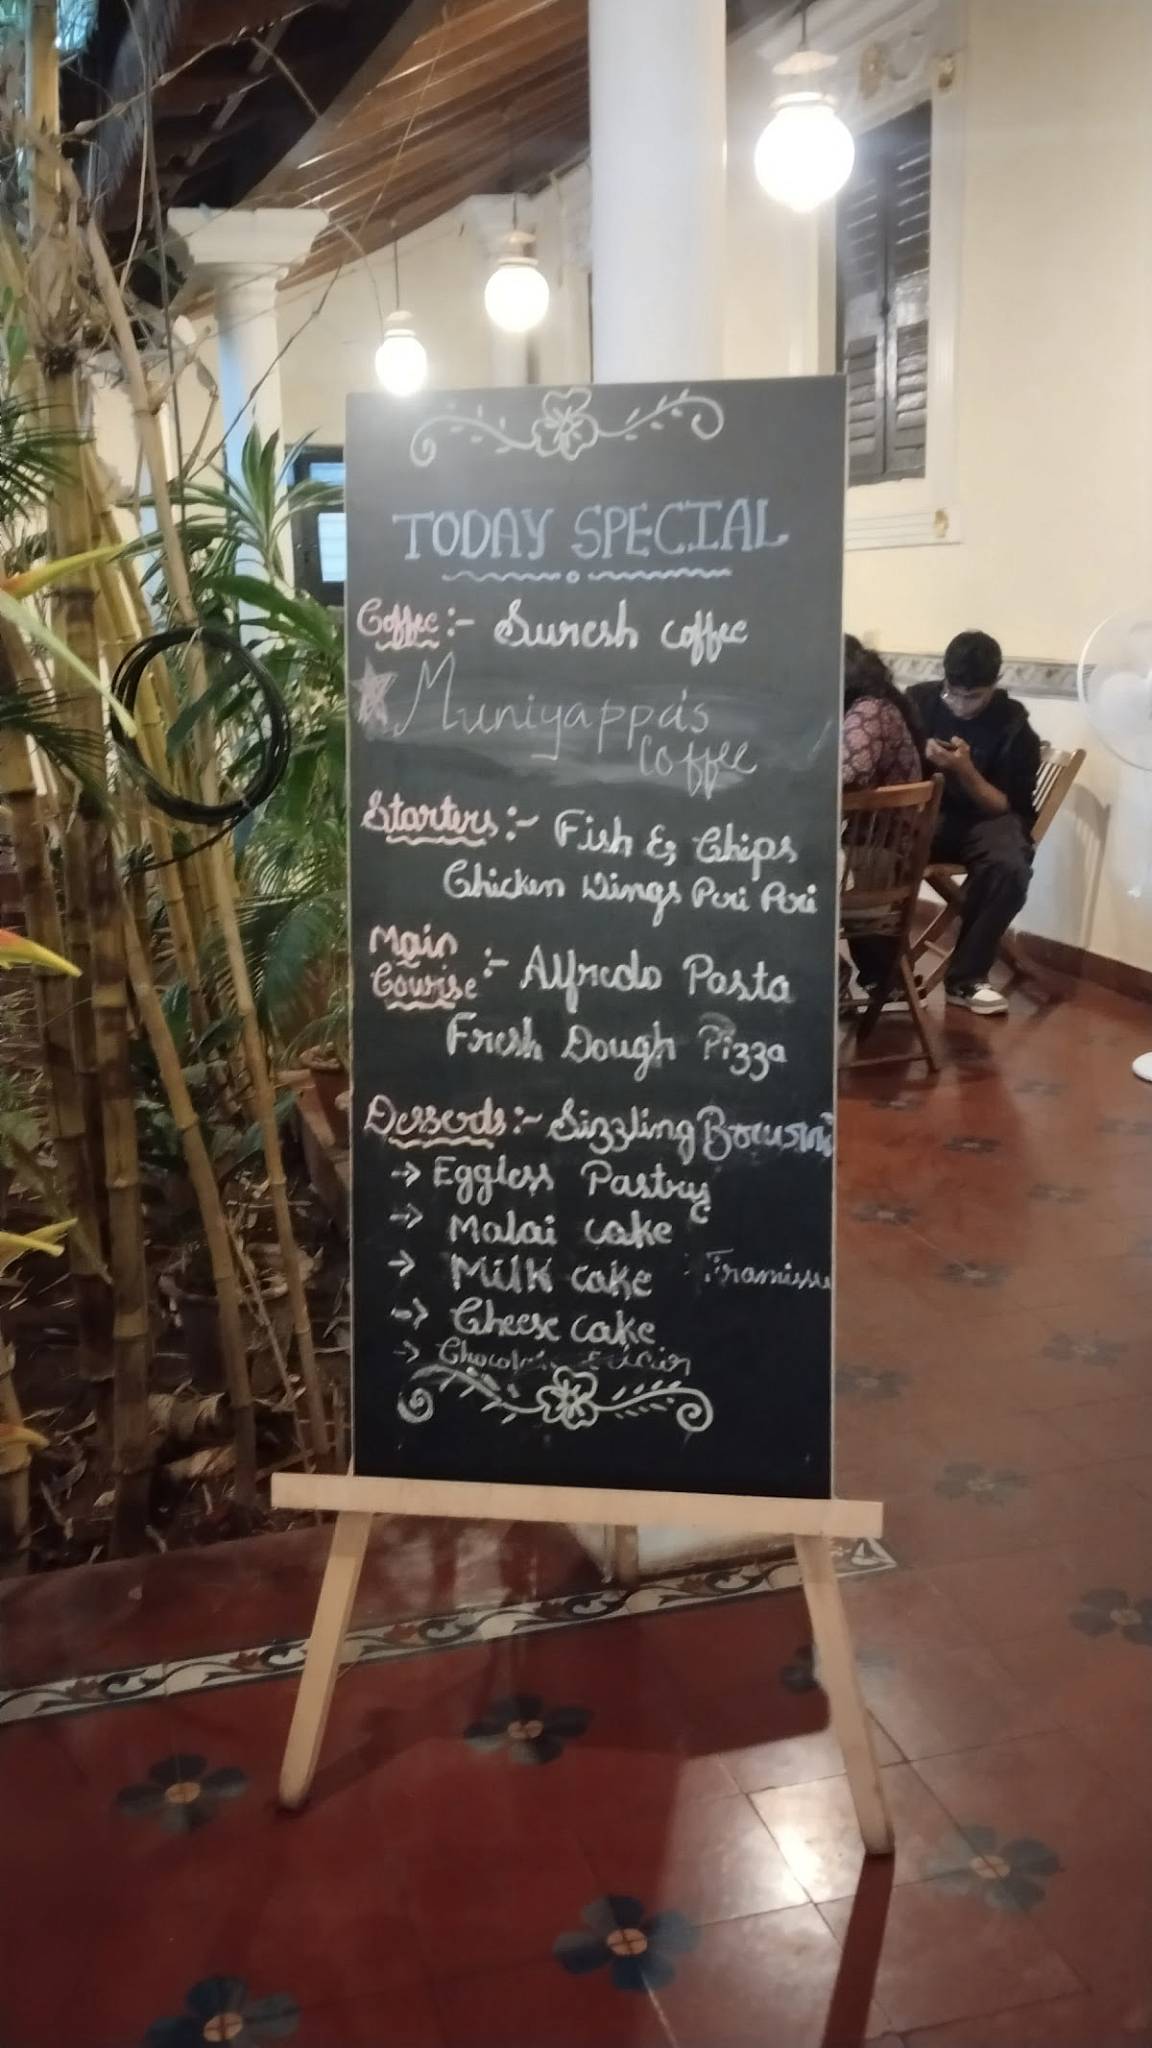 TODAY SPECIAL
Coffee:- Suresh coffee
Muniyappa's
Coffee
Starters:- Fish & Chips
Chicken Wings Peri Peri
Main
Cowise :- Alfredo Pasta
Fresh Dough Pizza
Desserts:- Sizzling
→ Eggless Pastry
→ Malai cake
→ Milk cake Tiramissu
→ Cheese cake
→